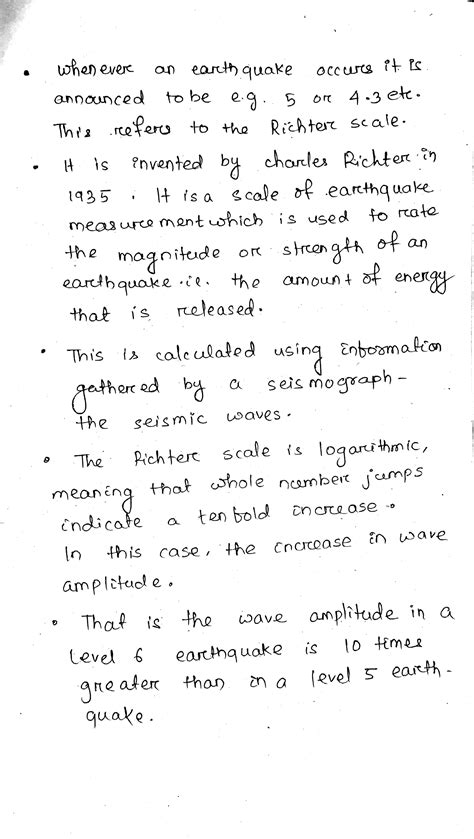 • whenever an earthquake occurs it is
announced to be e.g. 5 or 4.3 etc.
This refers to the Richter scale.
• It is invented by charles Richter in
1935. It is a scale of earthquake
measurement which is used to rate
the magnitude or strength of an
earthquake .i.e. the amount of energy
that is released.
• This is calculated using information
gathered by a seismograph -
the seismic waves.
• The Richter scale is logarithmic,
meaning that whole number jumps
indicate a tenfold increase.
In this case, the increase in wave
amplitude.
• That is the wave amplitude in a
level 6 earthquake is 10 times
greater than in a level 5 earth-
quake.